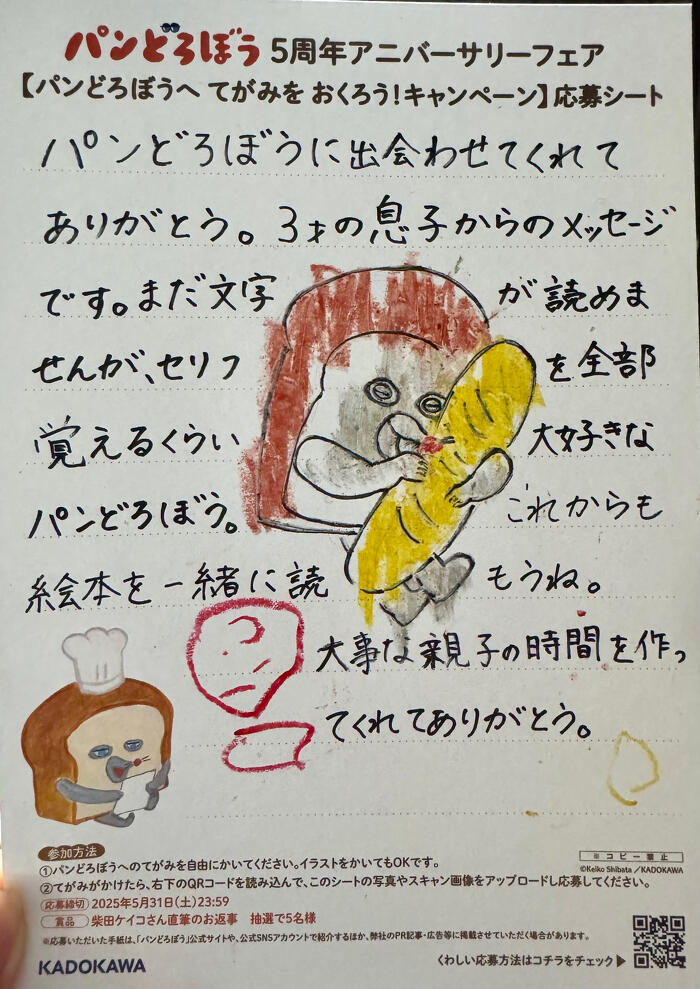 パンどろぼう 5周年アニバーサリーフェア
【パンどろぼうへ てがみを おくろう!キャンペーン】応募シート
パンどろぼうに出会わせてくれて
ありがとう。3才の息子からのメッセージ
です。まだ文字が読めま
せんが、セリフを全部
覚えるくらい大好きな
パンどろぼう。これからも
絵本を一緒に読もうね。
大事な親子の時間を作っ
てくれてありがとう。
参加方法
①パンどろぼうへのてがみを自由にかいてください。イラストをかいてもOKです。
②てがみがかけたら、右下のQRコードを読み込んで、このシートの写真やスキャン画像をアップロードし応募してください。
応募締切 2025年5月31日(土)23:59
賞品 柴田ケイコさん直筆のお返事 抽選で5名様
※応募いただいた手紙は、「パンどろぼう」公式サイトや、公式SNSアカウントで紹介するほか、弊社のPR記事・広告等に掲載させていただく場合があります。
※コピー禁止
©Keiko Shibata/KADOKAWA
KADOKAWA
くわしい応募方法はコチラをチェック▶